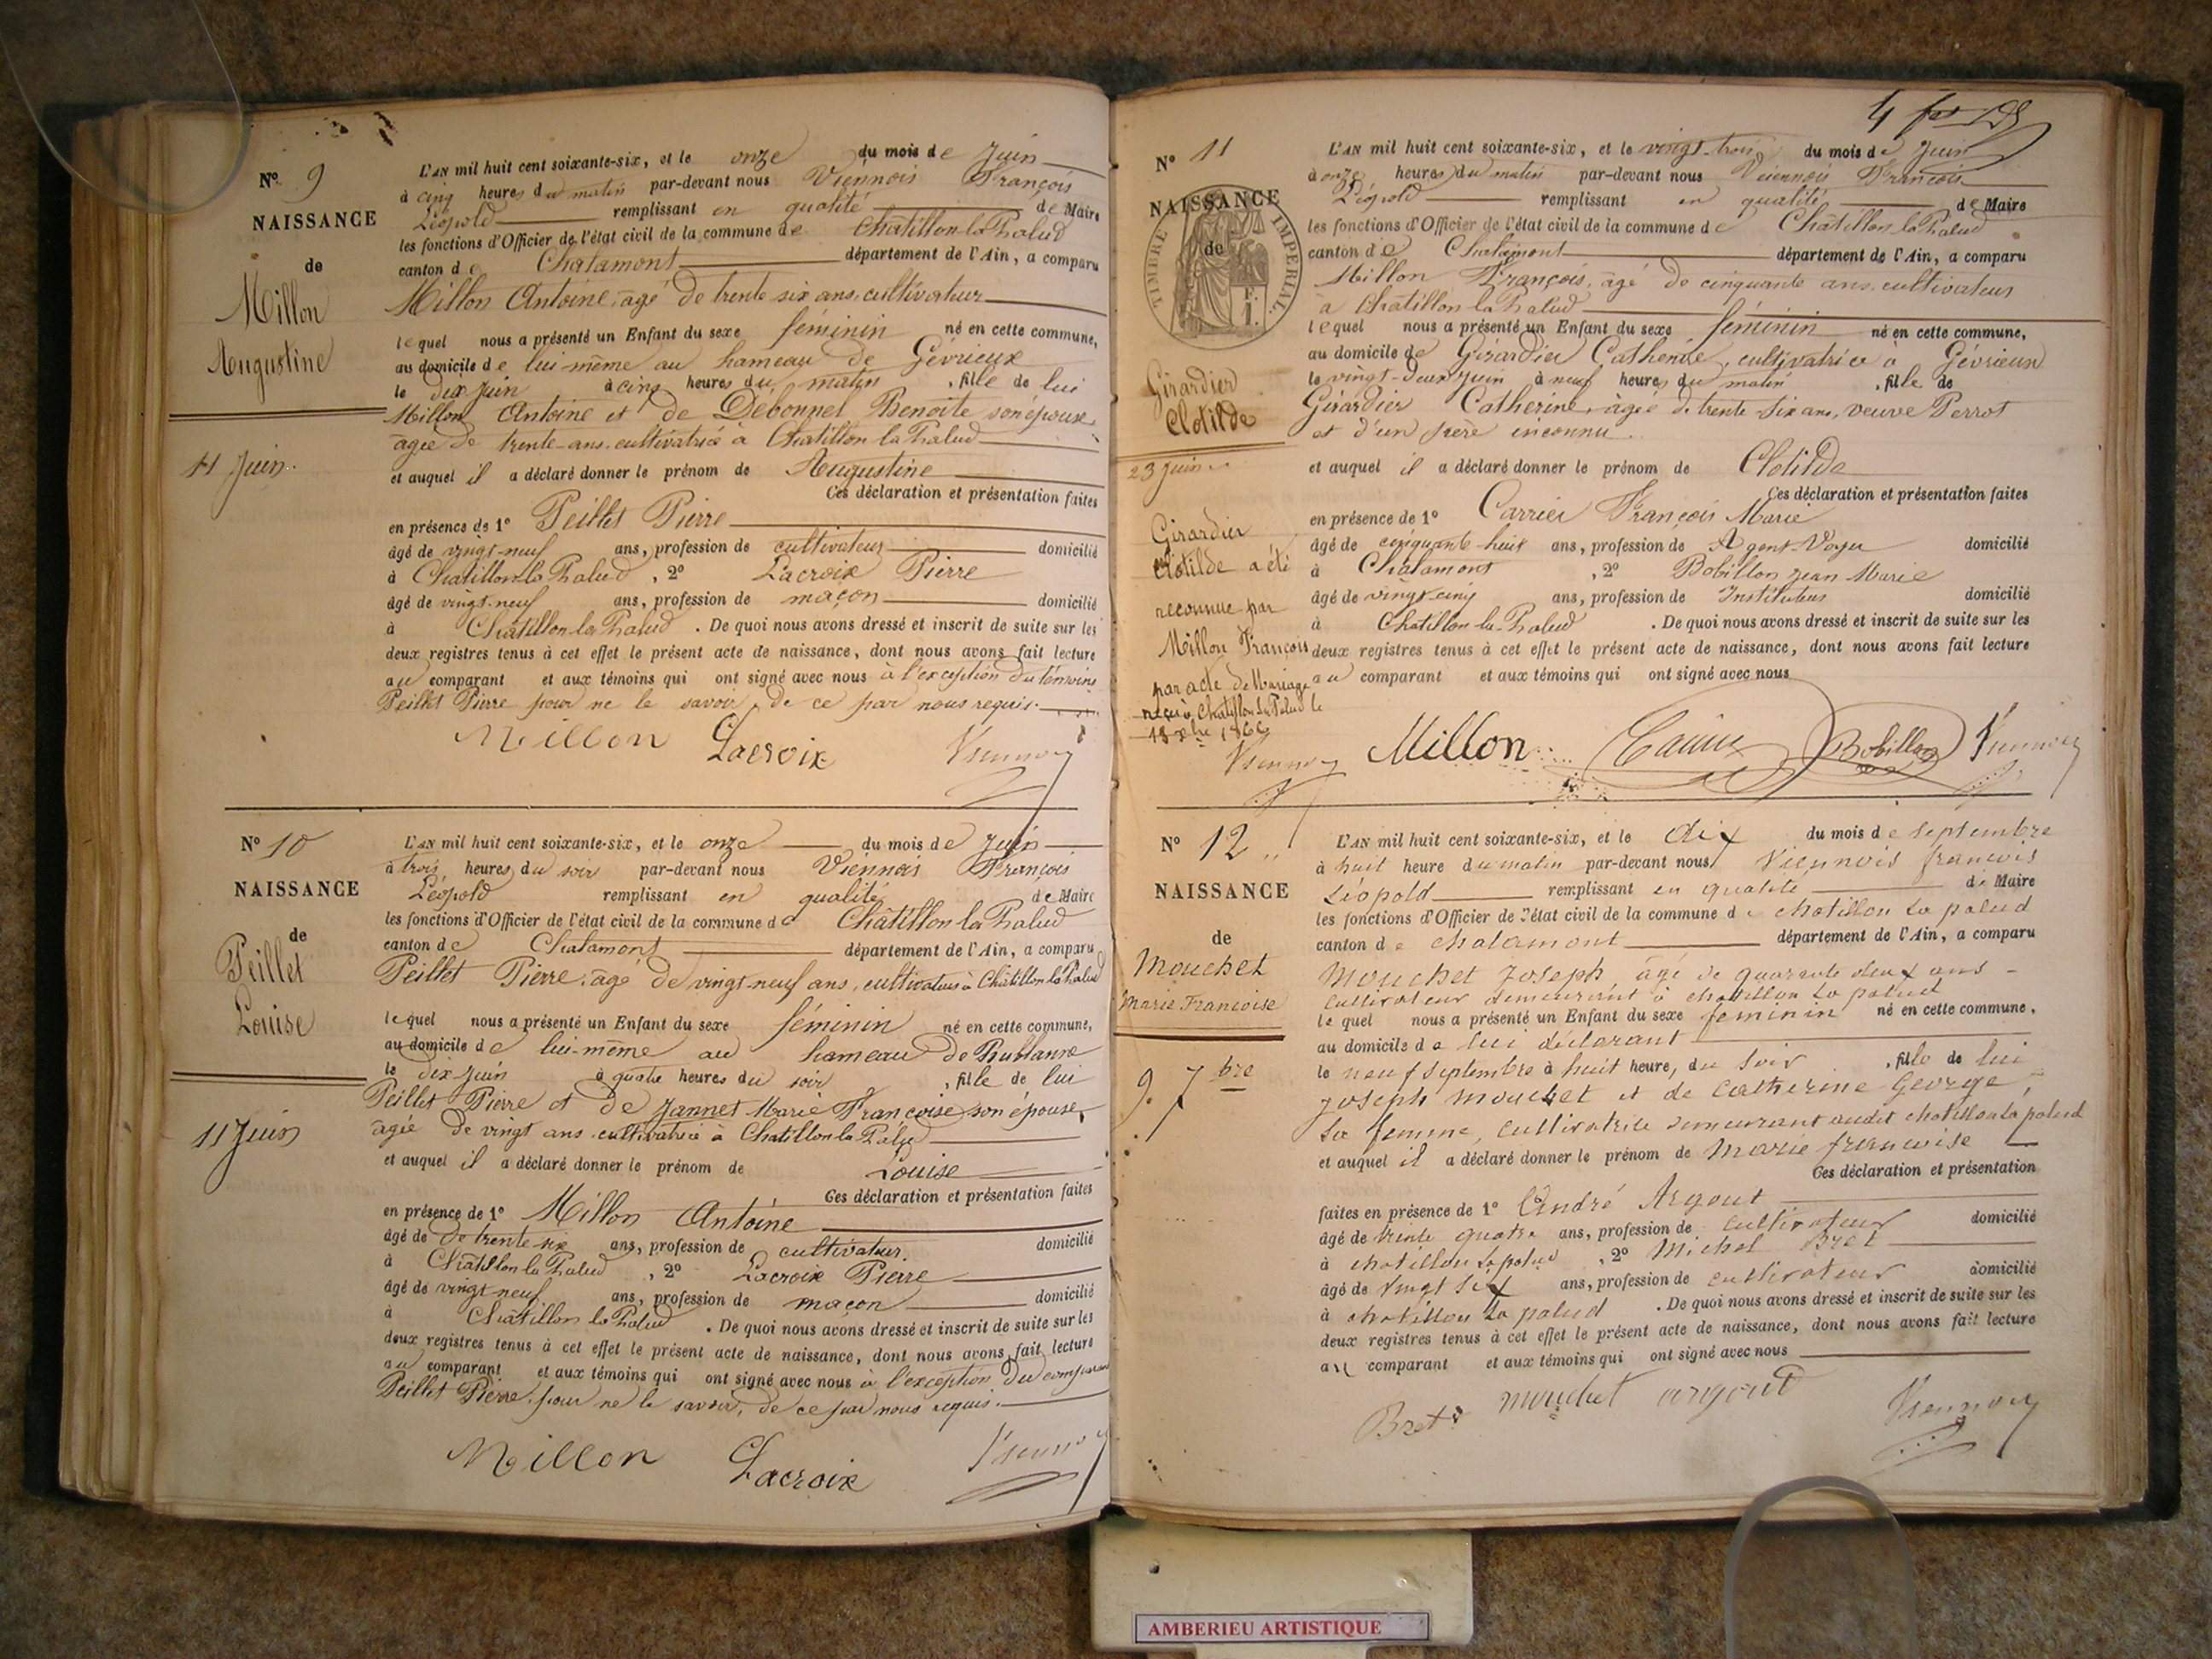 Nº 9
NAISSANCE
de
Millon
Augustine
11 Juin.
L'AN mil huit cent soixante-six, et le onze du mois de Juin
à cinq heures du matin par-devant nous Viennois François
Léopold remplissant en qualité de Maire
les fonctions d'Officier de l'état civil de la commune de Châtillon la Palud
canton de Chalamont département de l'Ain, a comparu
Millon Antoine, âgé de trente six ans, cultivateur
lequel nous a présenté un Enfant du sexe féminin né en cette commune,
au domicile de lui-même au hameau de Gévrieux
le dix Juin à cinq heures du matin, fille de lui
Millon Antoine et de Débonnel Benoite son épouse,
âgée de trente ans, cultivatrice à Chatillon la Palud
et auquel il a déclaré donner le prénom de Augustine
Ces déclaration et présentation faites
en présence de 1º Peillet Pierre
âgé de vingt-neuf ans, profession de cultivateur domicilié
à Chatillon la Palud, 2º Lacroix Pierre
âgé de vingt-neuf ans, profession de maçon domicilié
à Châtillon la Palud. De quoi nous avons dressé et inscrit de suite sur les
deux registres tenus à cet effet le présent acte de naissance, dont nous avons fait lecture
au comparant et aux témoins qui ont signé avec nous à l'exception du témoin
Peillet Pierre pour ne le savoir, de ce par nous requis.
Millon Lacroix Viennois
Nº 10
NAISSANCE
de
Peillet
Louise
11 Juin
L'AN mil huit cent soixante-six, et le onze du mois de Juin
à trois heures du soir par-devant nous Viennois François
Léopold remplissant en qualité de Maire
les fonctions d'Officier de l'état civil de la commune de Châtillon la Palud
canton de Chalamont département de l'Ain, a comparu
Peillet Pierre, âgé de vingt-neuf ans, cultivateur à Châtillon la Palud
lequel nous a présenté un Enfant du sexe féminin né en cette commune,
au domicile de lui-même au hameau de Bublanne
le dix Juin à quatre heures du soir, fille de lui
Peillet Pierre et de Jannet Marie Françoise son épouse,
âgée de vingt ans, cultivatrice à Chatillon la Palud
et auquel il a déclaré donner le prénom de Louise
Ces déclaration et présentation faites
en présence de 1º Millon Antoine
âgé de de trente six ans, profession de cultivateur domicilié
à Châtillon la Palud, 2º Lacroix Pierre
âgé de vingt neuf ans, profession de maçon domicilié
à Châtillon la Palud. De quoi nous avons dressé et inscrit de suite sur les
deux registres tenus à cet effet le présent acte de naissance, dont nous avons fait lecture
au comparant et aux témoins qui ont signé avec nous à l'exception du comparant
Peillet Pierre, pour ne le savoir, de ce par nous requis.
Millon Lacroix Viennois
4
Nº 11
NAISSANCE
de
TIMBRE IMPERIAL
Girardier
Clotilde
23 Juin
Girardier
Clotilde a été
reconnue par
Millon François
par acte de Mariage
reçu à Chatillon la Palud le
18 xbre 1866
Viennois
L'AN mil huit cent soixante-six, et le vingt-trois du mois de Juin
à onze heures du matin par-devant nous Viennois François
Léopold remplissant en qualité de Maire
les fonctions d'Officier de l'état civil de la commune de Châtillon la Palud
canton de Chalamont département de l'Ain, a comparu
Millon François, âgé de cinquante ans, cultivateur
à Chatillon la Palud
lequel nous a présenté un Enfant du sexe féminin né en cette commune,
au domicile de Girardier Catherine, cultivatrice à Gévrieux
le vingt-deux Juin à neuf heures du matin, fille de
Girardier Catherine, âgée de trente six ans, veuve Perrot
et d'un père inconnu.
et auquel il a déclaré donner le prénom de Clotilde
Ces déclaration et présentation faites
en présence de 1º Carrier François Marie
âgé de cinquante-huit ans, profession de Agent-Voyer domicilié
à Chalamont, 2º Bobillon Jean Marie
âgé de vingt-cinq ans, profession de Instituteur domicilié
à Chatillon la Palud. De quoi nous avons dressé et inscrit de suite sur les
deux registres tenus à cet effet le présent acte de naissance, dont nous avons fait lecture
au comparant et aux témoins qui ont signé avec nous
Millon Carrier Bobillon Viennois
Nº 12
NAISSANCE
de
Mouchet
Marie Françoise
9. 7bre
L'AN mil huit cent soixante-six, et le dix du mois de septembre
à huit heure du matin par-devant nous Viennois francois
Léopold remplissant en qualité de Maire
les fonctions d'Officier de l'état civil de la commune de chatillon la palud
canton de chalamont département de l'Ain, a comparu
mouchet joseph âgé de quarante deux ans
cultivateur demeurant à chatillon la palud
lequel nous a présenté un Enfant du sexe feminin né en cette commune,
au domicile de lui déclarant
le neuf septembre à huit heure, du soir, fille de lui
joseph mouchet et de catherine George,
sa femme, cultivatrice demeurant audit chatillon la palud
et auquel il a déclaré donner le prénom de marie francoise
Ces déclaration et présentation
faites en présence de 1º André Argout
âgé de trente quatre ans, profession de cultivateur domicilié
à chatillon la palud, 2º Michel Bret
âgé de vingt six ans, profession de cultivateur domicilié
à chatillon la palud. De quoi nous avons dressé et inscrit de suite sur les
deux registres tenus à cet effet le présent acte de naissance, dont nous avons fait lecture
au comparant et aux témoins qui ont signé avec nous
Bret mouchet argout Viennois
AMBERIEU ARTISTIQUE